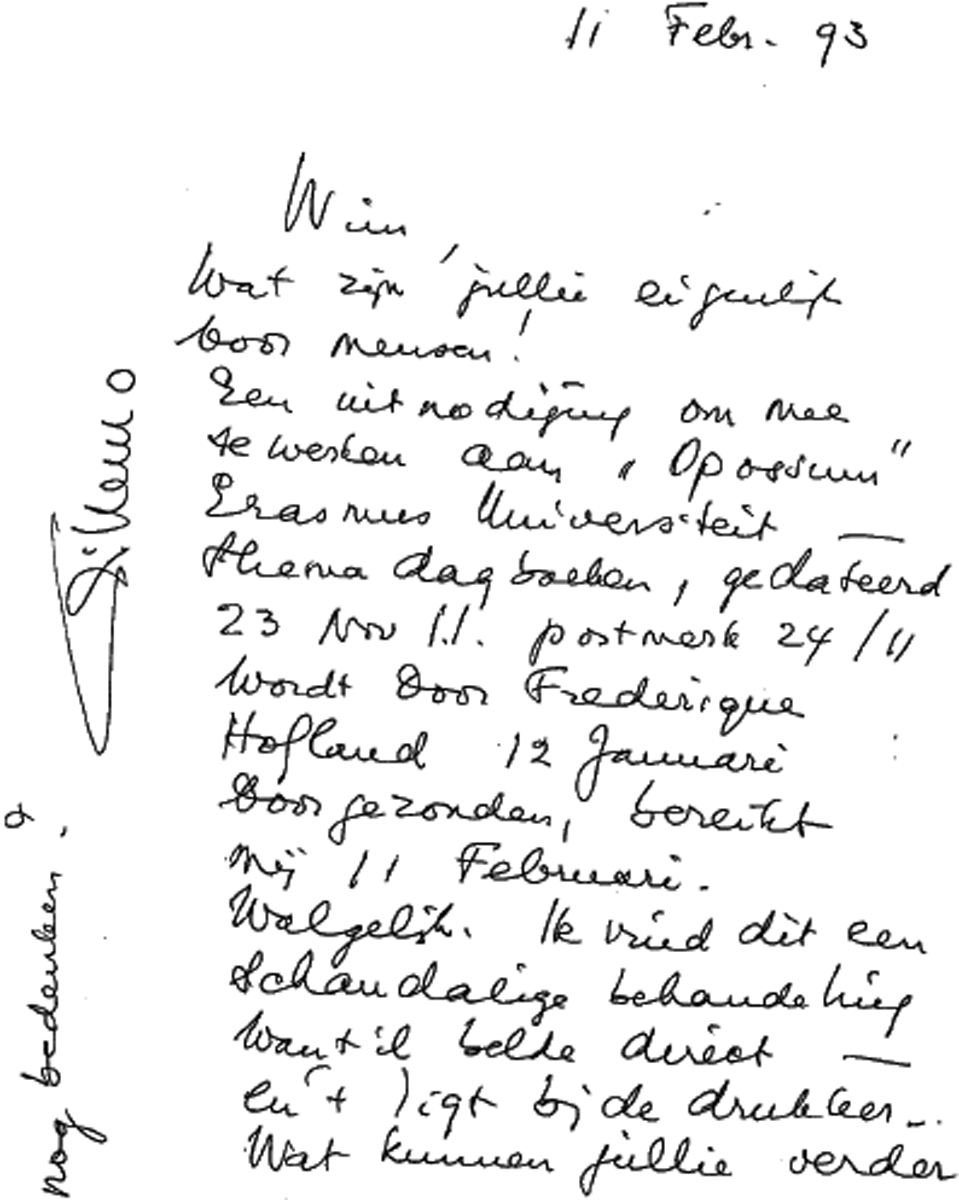 11 Febr. 93
Wim,
Wat zijn jullie eigenlijk
voor mensen!
Een uitnodiging om mee
te werken aan „Opossum"
Erasmus Universiteit —
thema dagboeken, gedateerd
23 Nov l.l. postmerk 24/11
wordt door Frederique
Hofland 12 Januari
doorgezonden, bereikt
mij 11 Februari.
Walgelijk. Ik vind dit een
schandalige behandeling
want ik belde direct —
en 't ligt bij de drukker...
Wat kunnen jullie verder
nog bedenken.
Willem O